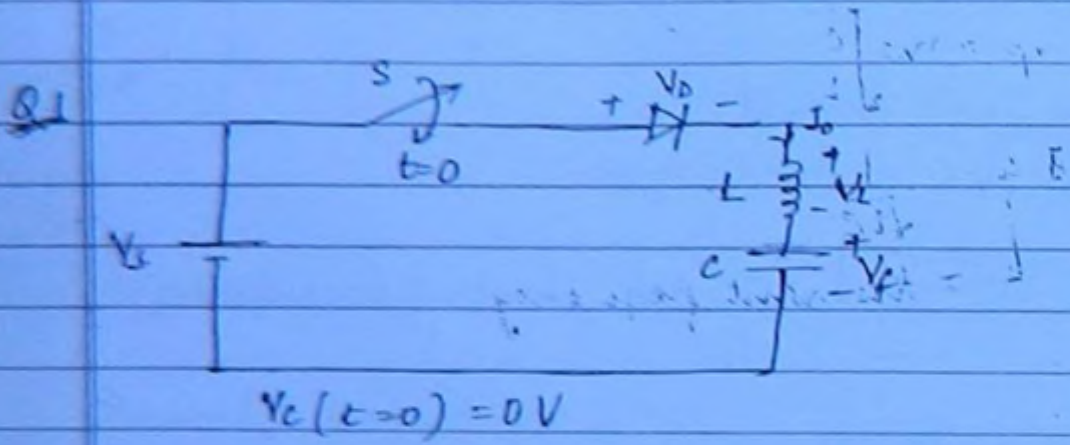 Q1
S
t=0
+ VD -
I0
+
L VL
-
Vs
+
C VC
-
VC (t=0) = 0V